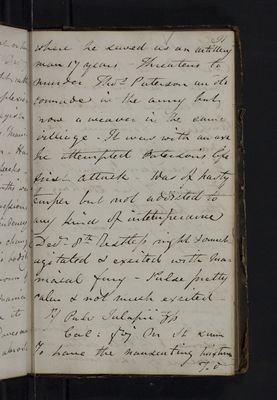 31
where he saved as an artillery
man 17 years - Threatens to
murder Thos Paterson an old
comrade in the army but
now a weaver in the same
village - It was with an axe
he attempted Paterson's life
first attack Was of hasty
temper but not addicted to
any kind of intemperance
Decr 8th Restless night & much
agitated & excited with ma-
niacal fury - Pulse pretty
calm & not much excited -
Rx Pulv Jalapii
Cal:
To have the nauseating mixture